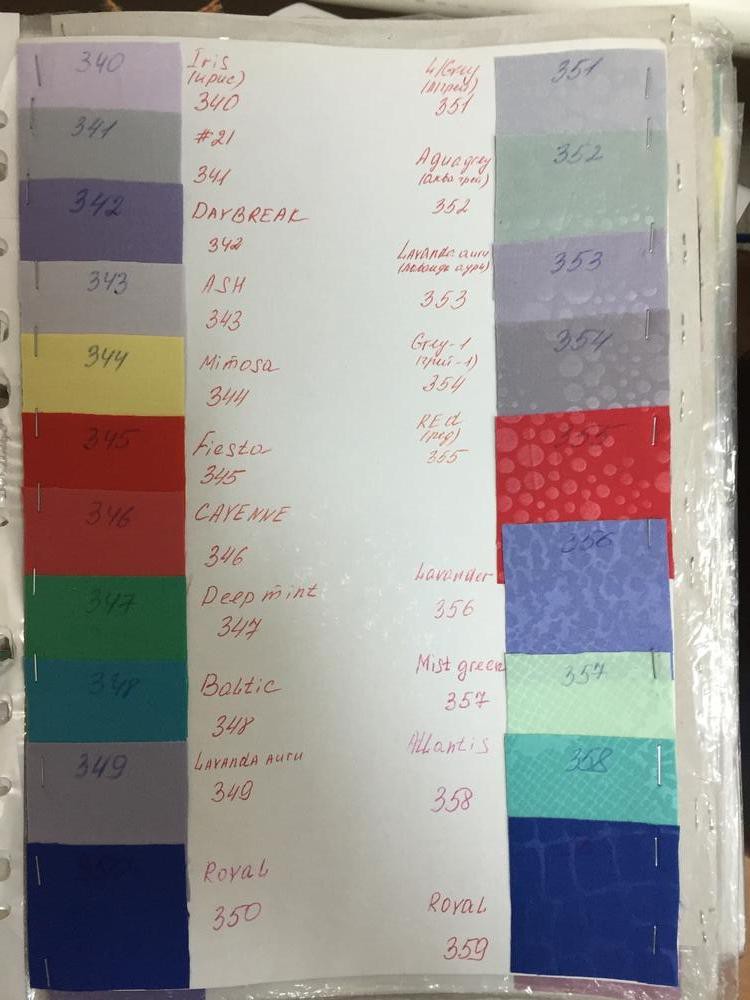 340
Iris
(ирис)
340
341
#21
341
342
DAYBREAK
342
343
ASH
343
344
Mimosa
344
345
Fiesta
345
346
CAYENNE
346
347
Deep mint
347
348
Baltic
348
349
LAVANDA AURU
349
Royal
350
L/Grey
351
351
Aquagrey
(аква грей)
352
352
Lavanda auru
(лаванда аури)
353
353
Grey-1
(грей-1)
354
354
REd
(ред)
355
355
Lavander
356
356
Mist green
357
357
Atlantis
358
358
Royal
359